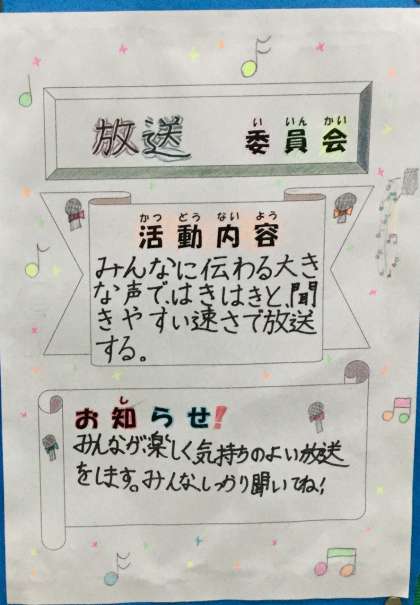 放送 委員会
いいんかい
活動内容
かつどうないよう
みんなに伝わる大き
な声で、はきはきと、聞
きやすい速さで放送
する。
お知らせ!
し
みんなが、楽しく、気持ちのよい放送
をします。みんな、しっかり聞いてね!